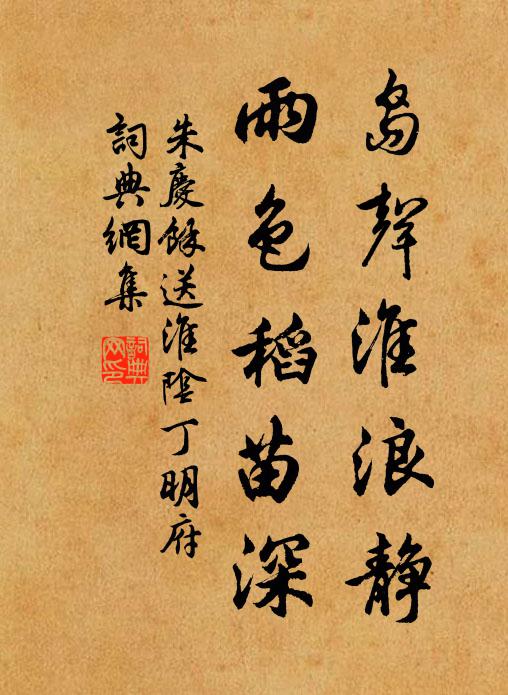 鳥聲淮浪靜
雨色稻苗深
朱慶餘送淮陰丁明府
詞典網集
詞典
网印